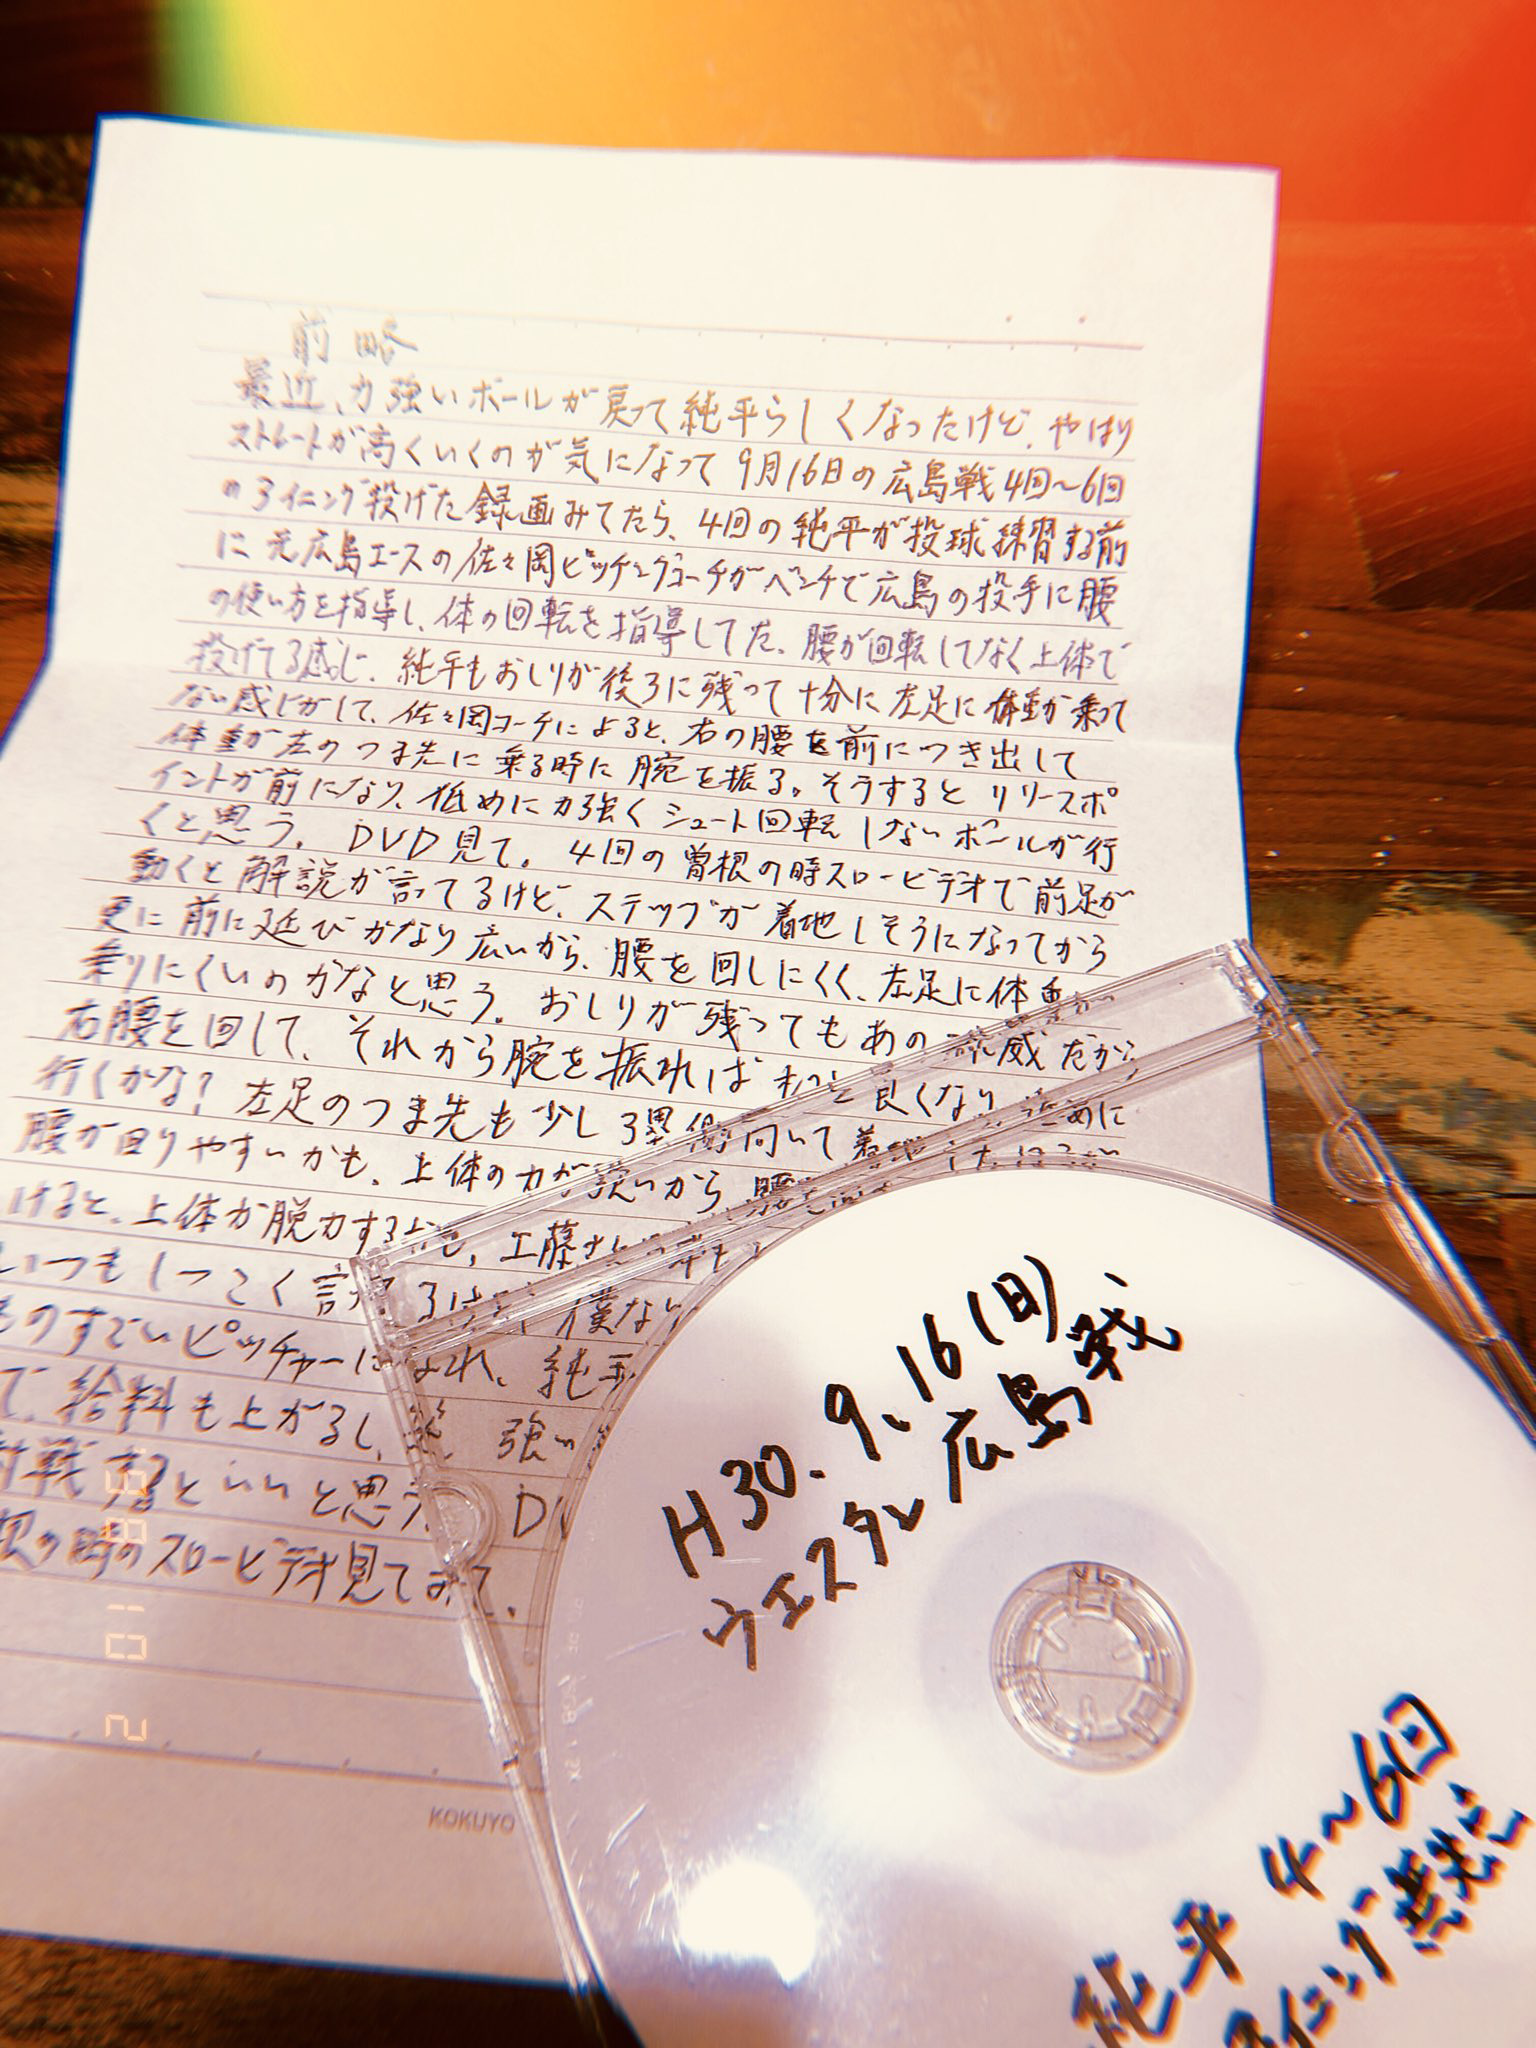 前略
最近、力強いボールが戻って純平らしくなったけど、やはり
ストレートが高くいくのが気になって9月16日の広島戦4回〜6回
の3イニング投げた録画みてたら、4回の純平が投球練習する前
に元広島エースの佐々岡ピッチングコーチがベンチで広島の投手に腰
の使い方を指導し、体の回転を指導してた。腰が回転してなく上体で
投げてる感じ。純平もおしりが後ろに残って十分に左足に体重が乗って
ない感じがして、佐々岡コーチによると、右の腰を前につき出して
体重が左のつま先に乗る時に腕を振る。そうするとリリースポ
イントが前になり、低めに力強くシュート回転しないボールが行
くと思う。DVD見て。4回の曽根の時スロービデオで前足が
動くと解説が言ってるけど、ステップが着地しそうになってから
更に前に延びかなり広いから、腰を回しにくく、左足に体重が
乗りにくいのかなと思う。おしりが残ってもあの球威だから
右腰を回して、それから腕を振ればもっと良くなり、低めに
行くかな?左足のつま先も少し3塁側向いて着地した方が
腰が回りやすいかも。上体の力が強いから、腰を
けると、上体が脱力するかも。工藤さん
いつもしつこく言ってるけど、僕なん
ものすごいピッチャーになれ、純平
て、給料も上がるし、強い
対戦するといいと思う。D
根の時のスロービデオ見てみて。
KOKUYO
H30.9.16(日)
ウエスタン広島戦
純平 4〜6回
3イニング無失点
2 10